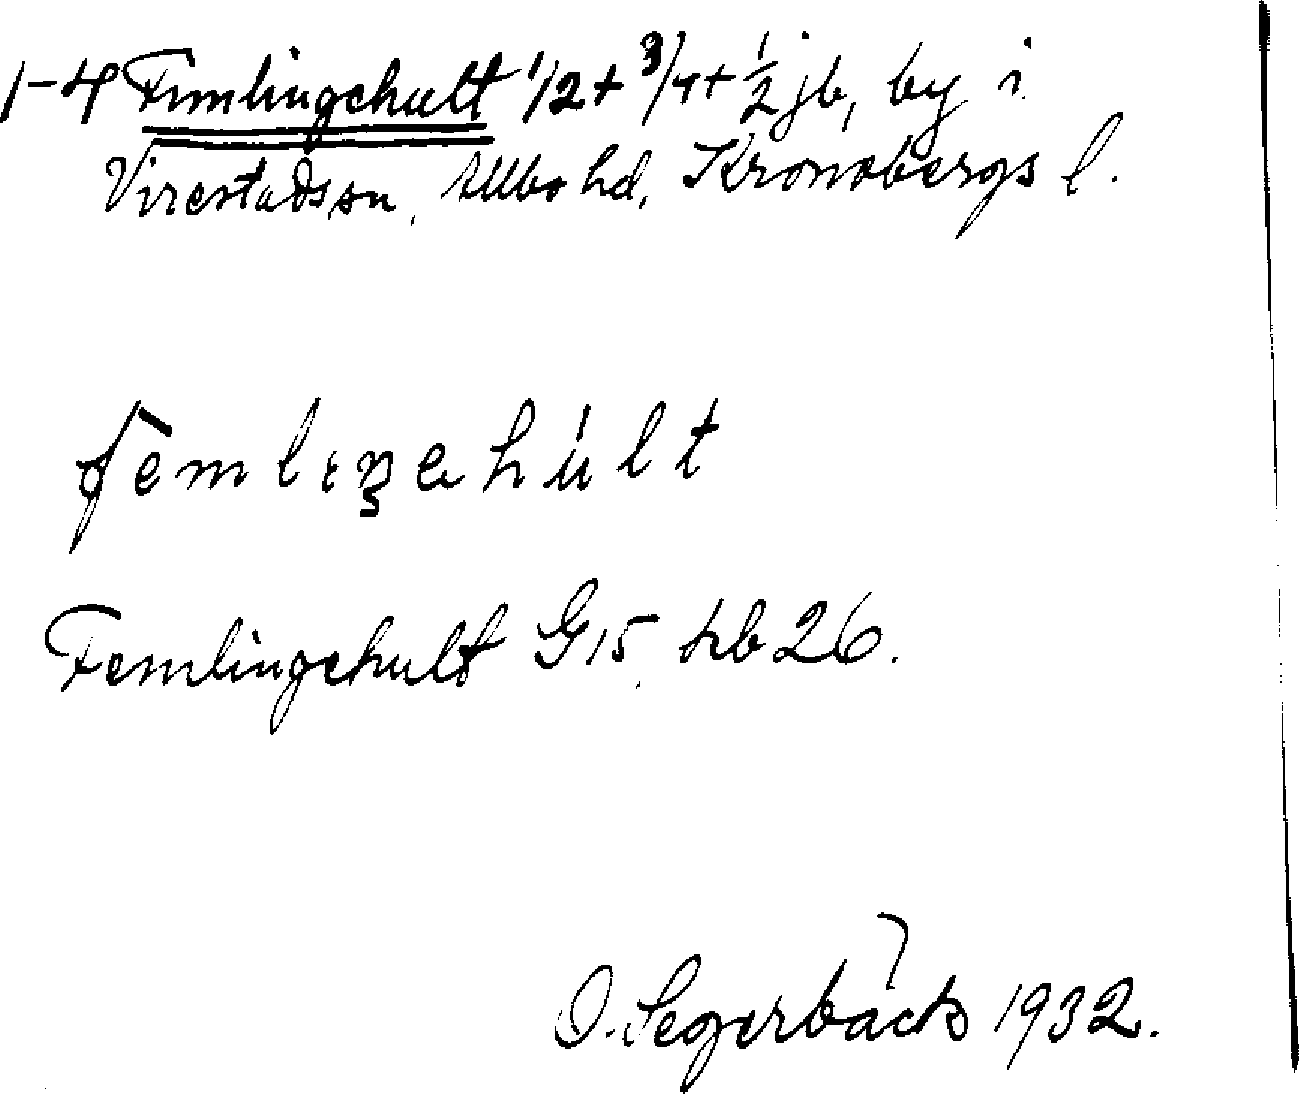 1-4 Femlingehult 1/2 + 3/4 + 1/2 jb, by i
Virestads sn, Allbo hd, Kronobergs l.
femlıŋahúlt
Femlingehult G15, hb 26.
O. Segerbäck 1932.